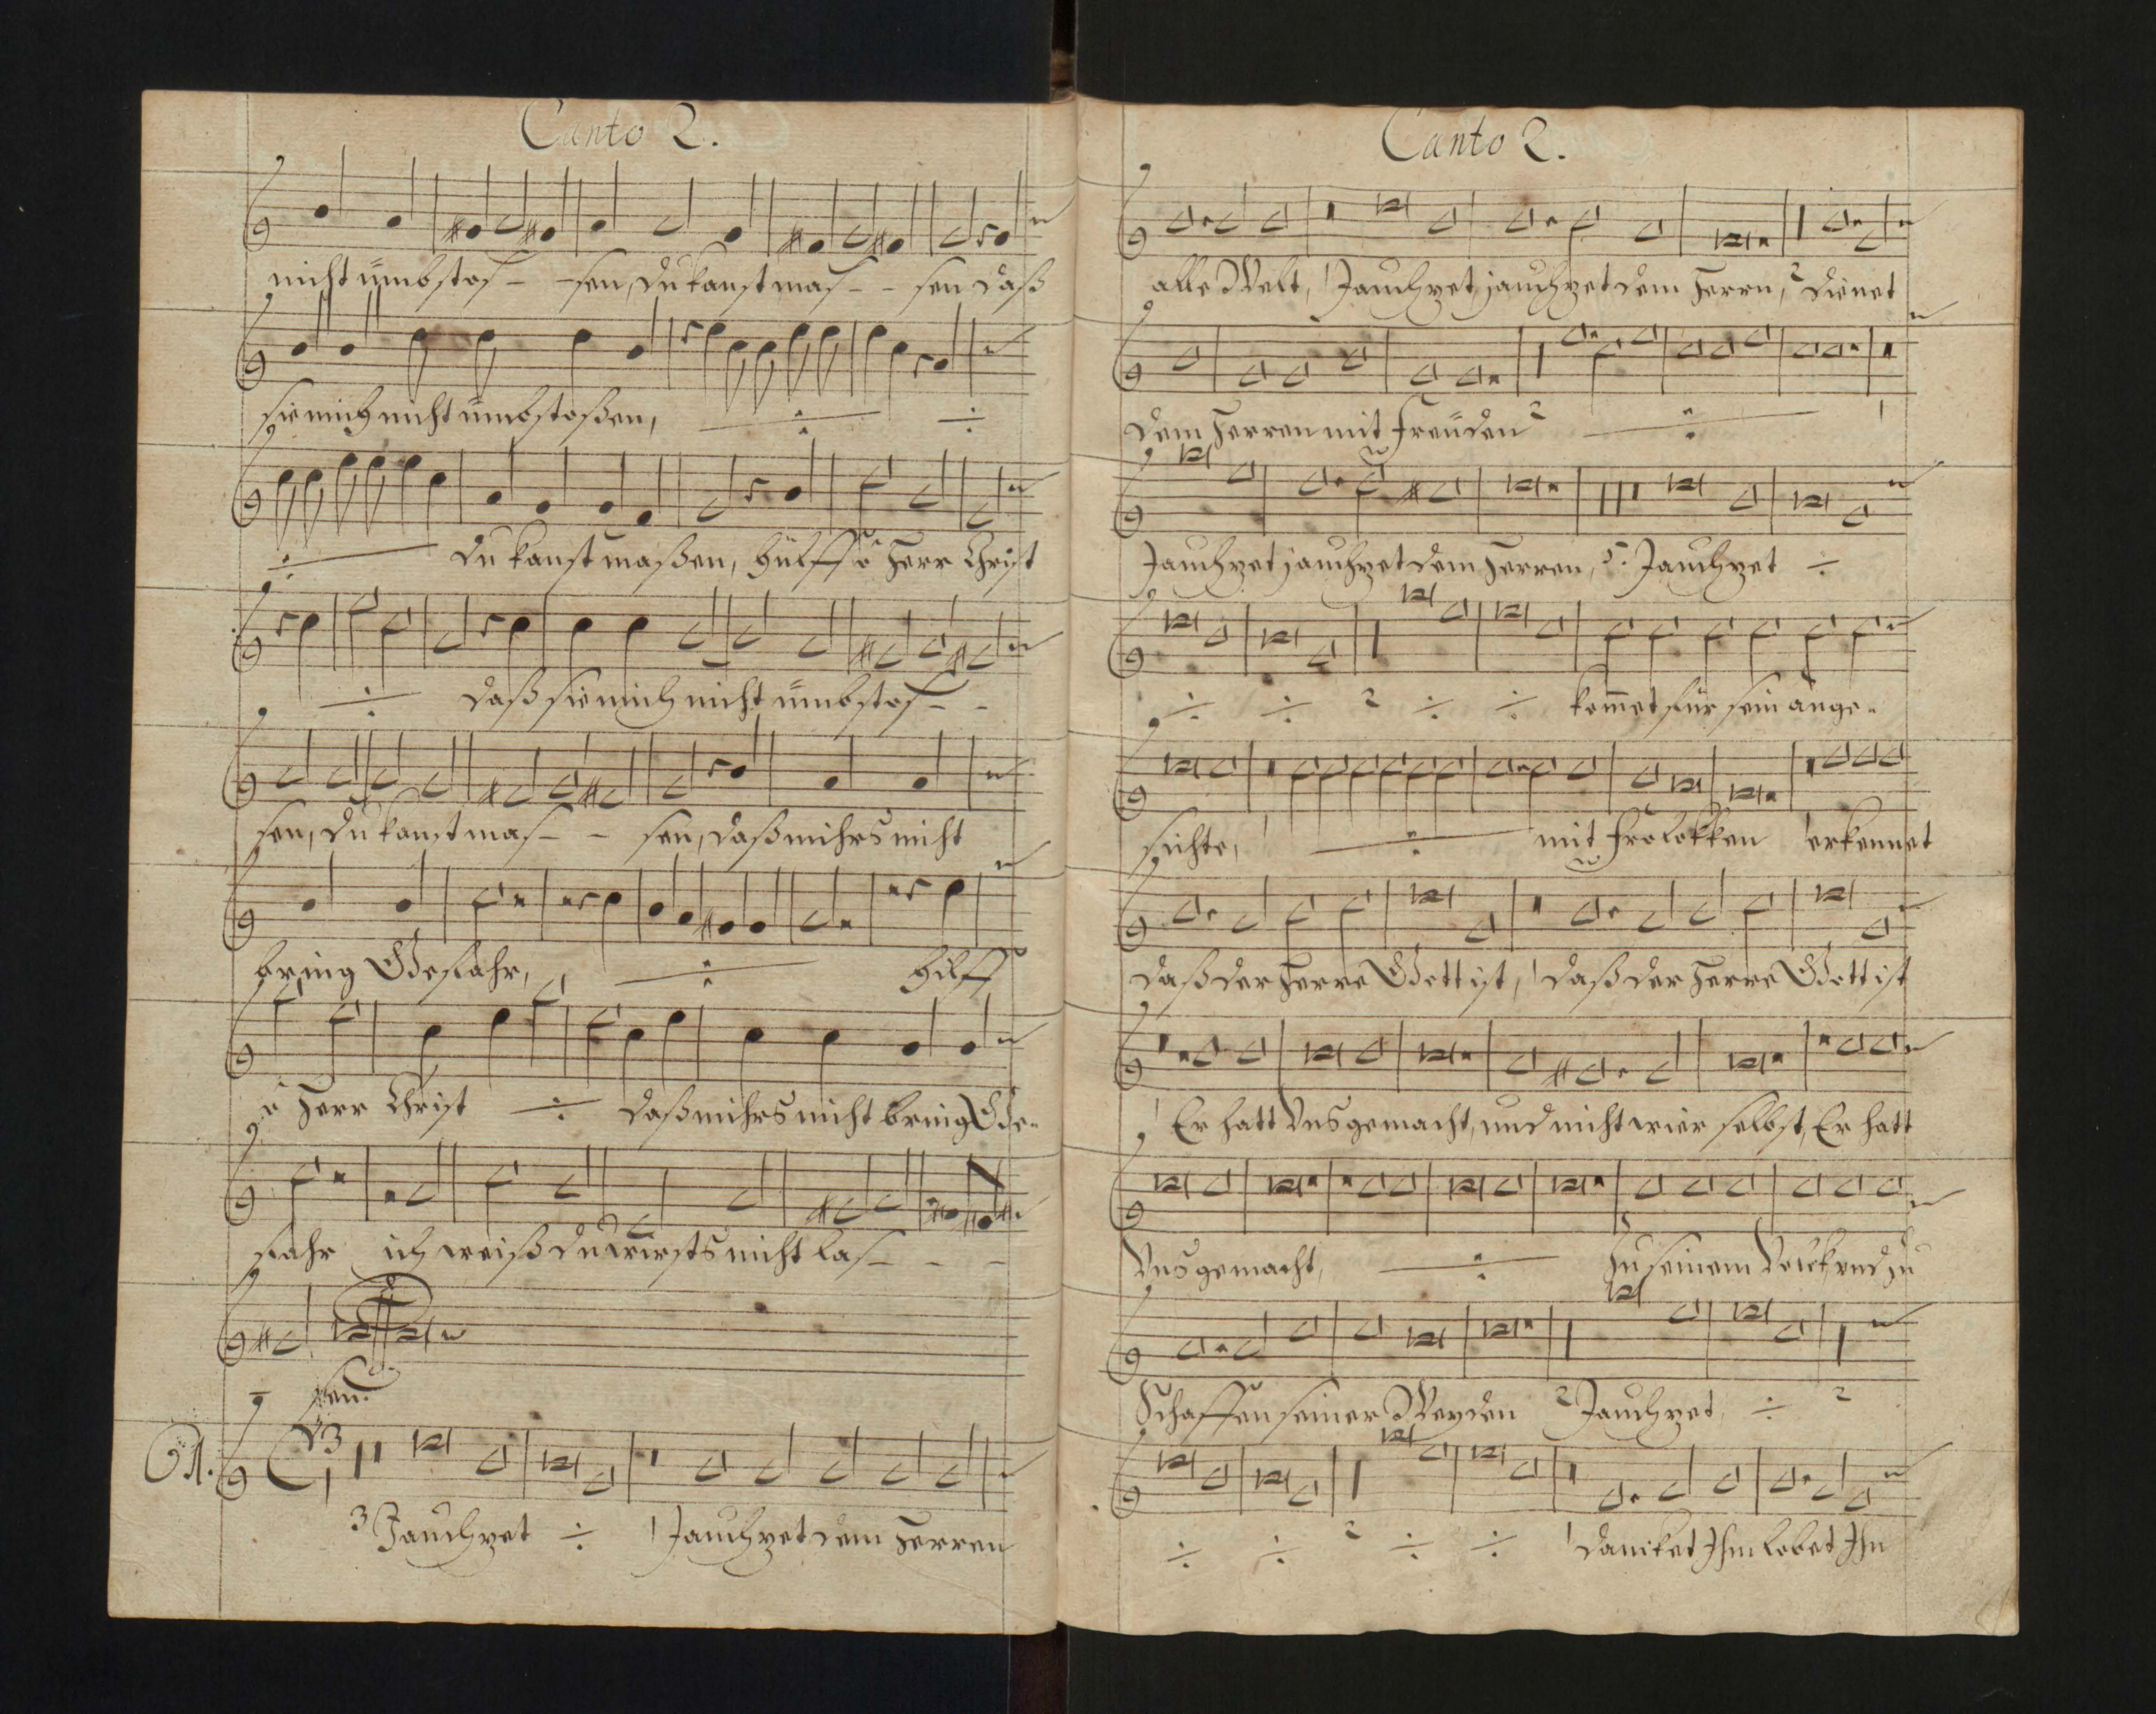 Canto 2.
nicht ümbstos- -sen, du kanst mas- - sen daß
sie mich nicht ümbstoßen, ÷ ÷
÷ du kanst maßen, hülff o Herr Christ
÷ daß sie mich nicht ümbstos- -
sen, du kanst mas- - sen, daß mihrs nicht
bring Gefahr, ÷ hilff
o Herr Christ ÷ daß mihrs nicht bring Ge-
fahr ich weiß du wirsts nicht las- - -
sen.
61.
3 Jauchzet ÷ 1 Jauchzet dem Herren
Canto 2.
alle Welt, 1 Jauchzet, jauchzet dem Herrn, 2 dienet
dem Herren mit Freüden 2 ÷ 1
Jauchzet jauchzet dem Herren, 5. Jauchzet ÷
÷ ÷ 2 ÷ ÷ kom̄et für sein ange-
sichte, 1 ÷ mit frolokken 1 erkennet
daß der Herre Gott ist, 1 daß der Herre Gott ist
1 Er hatt Vns gemacht, und nicht wier selbst, Er hatt
Vns gemacht, ÷ zu seinem Volck, und zu
Schaffen seiner Weyden 2 Jauchzet, ÷ 2
÷ ÷ 2 ÷ ÷ 1 dancket Ihm lobet Ihn